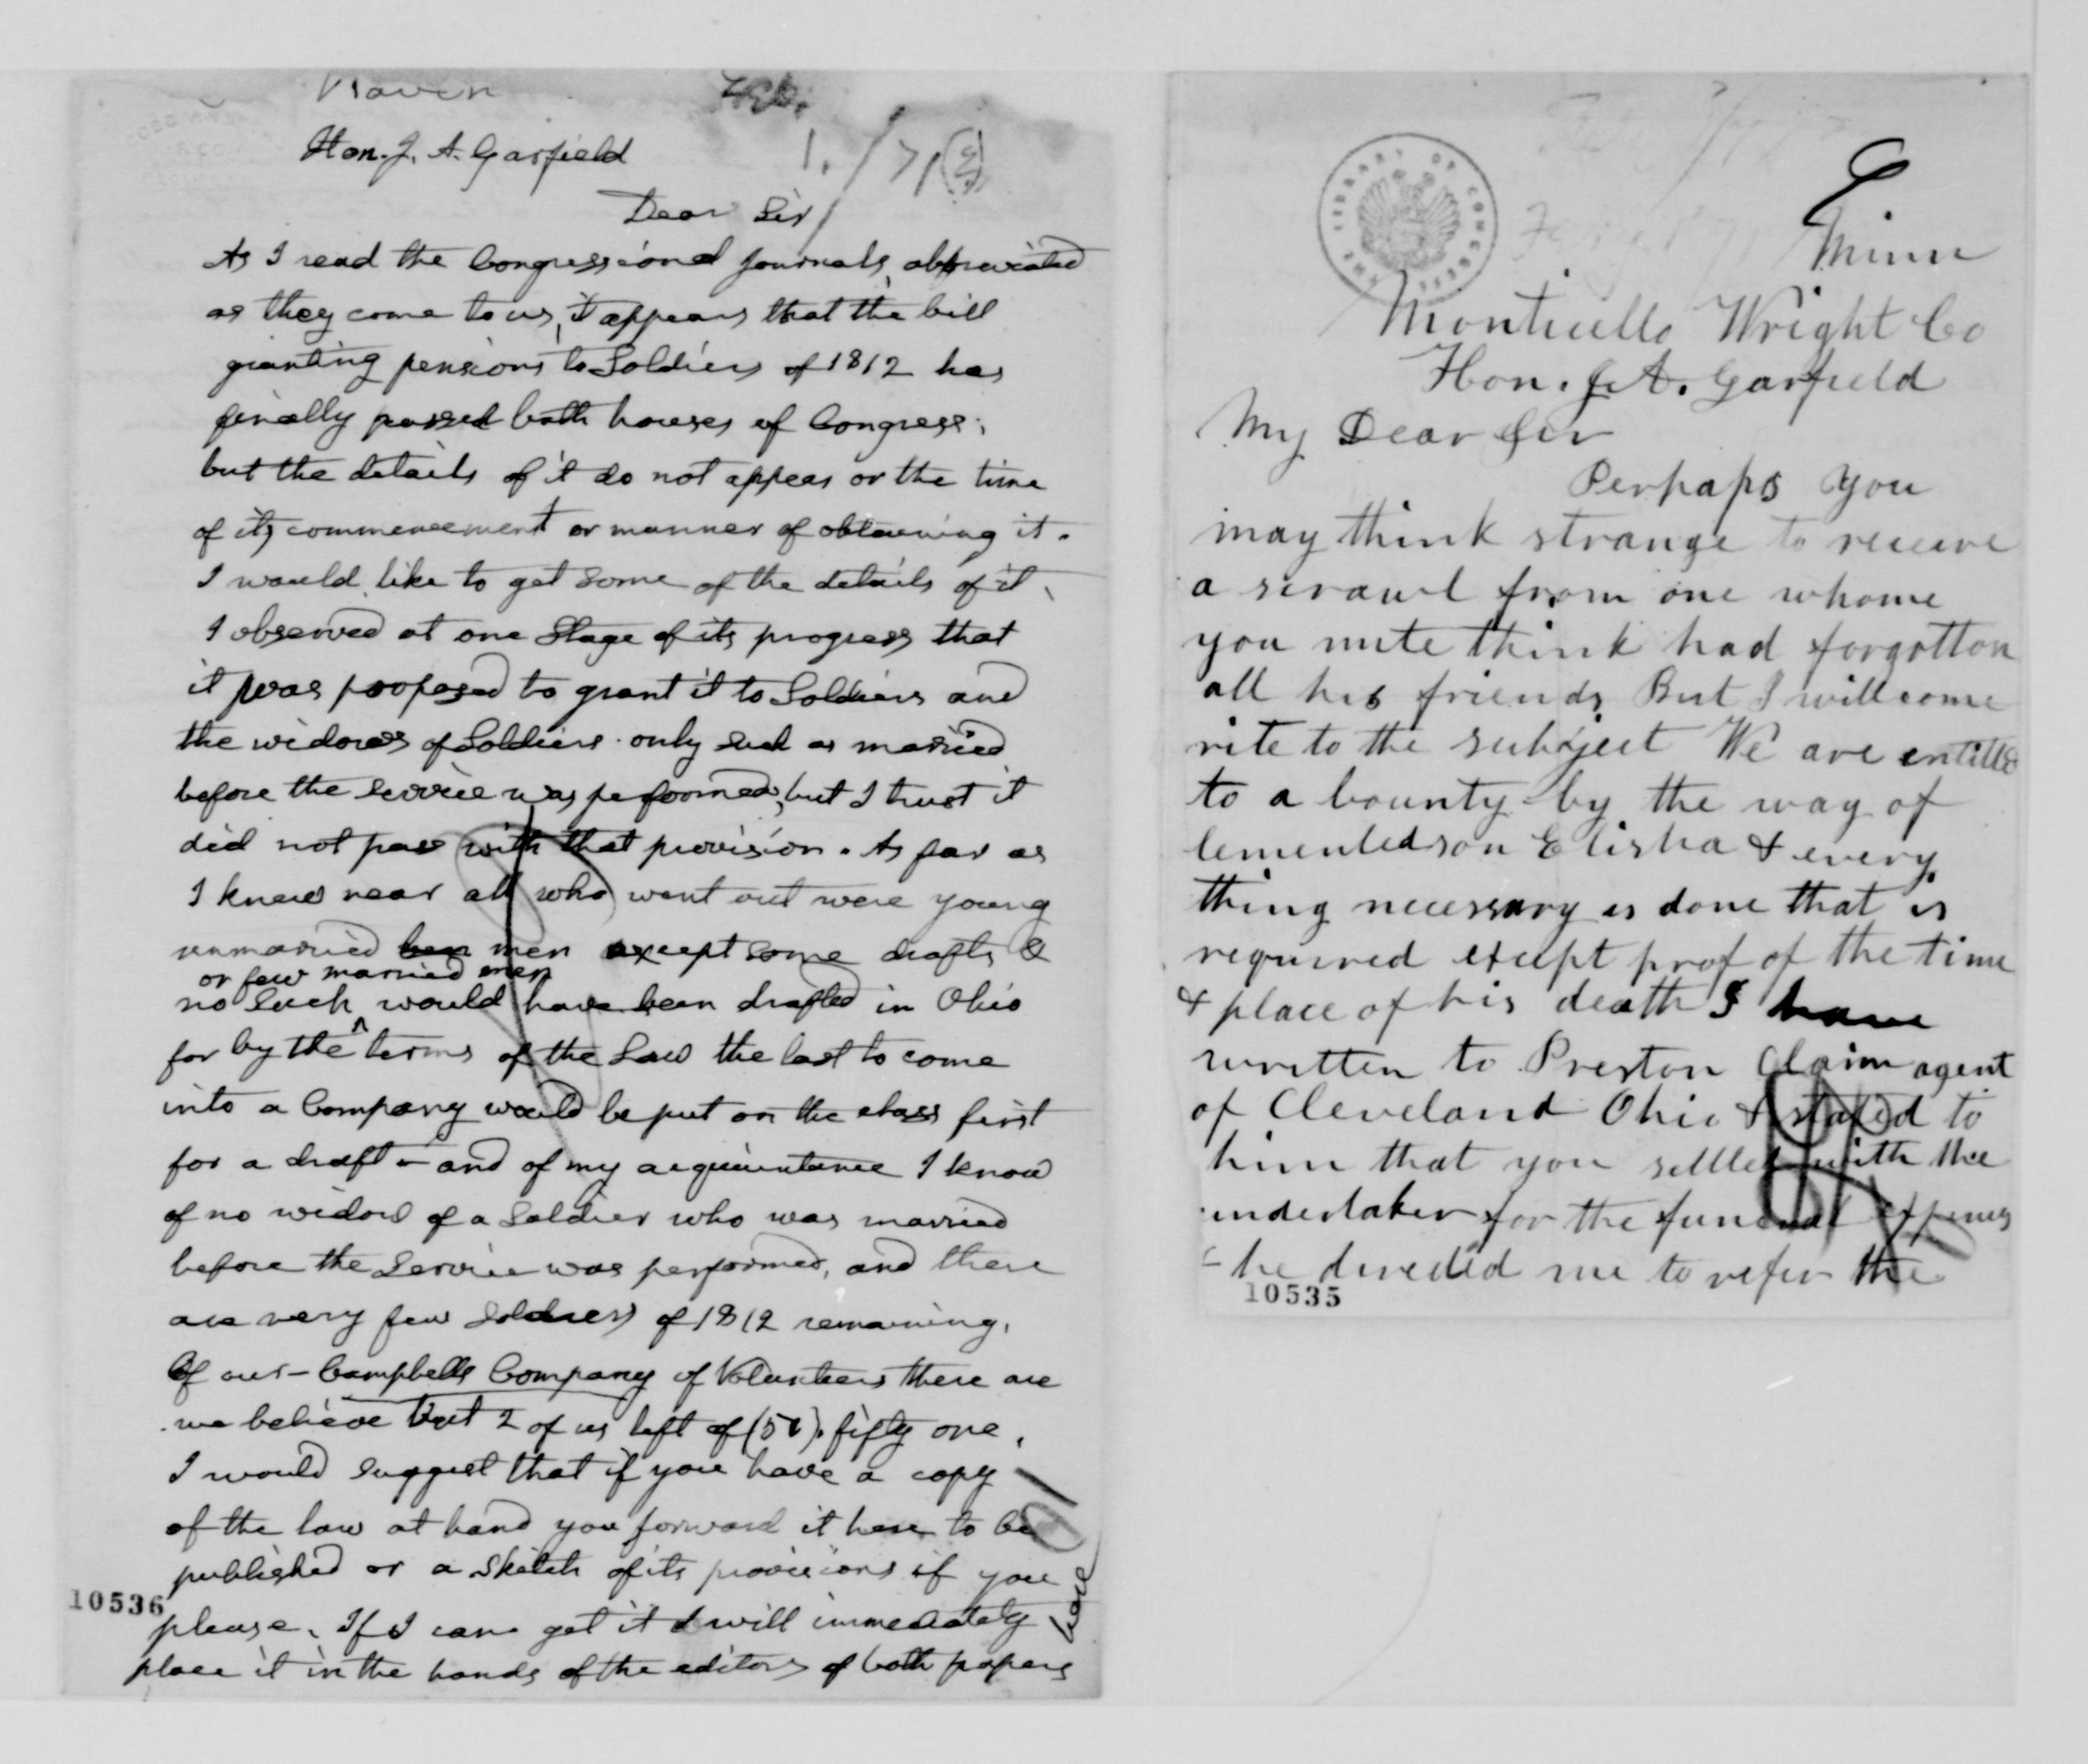 Hon. J. A. Garfield
Dear Sir
As I read the Congressional journals, abbreviated
as they come to us, it appears that the bill
granting pensions to Soldiers of 1812 has
finally passed both houses of Congress;
but the details of it do not appear or the time
of its commencement or manner of obtaining it.
I would like to get some of the details of it,
I observed at one Stage of its progress that
it was proposed to grant it to Soldiers and
the widows of Soldiers only such as married
before the service was performed, but I trust it
did not pass with that provision. As far as
I knew near all who went out were young
unmarried men except some drafts &
or few married men
no such would have been drafted in Ohio
for by the terms of the Law the last to come
into a Company would be put on the class first
for a draft - and of my acquaintance I know
of no widow of a Soldier who was married
before the Service was performed, and there
are very few Soldiers of 1812 remaining.
Of our - Campbells Company of Volunteers there are
we believe but 2 of us left of (51) fifty one.
I would suggest that if you have a copy
of the law at hand you forward it here to be
published or a Sketch of its provisions if you
please. If I can get it I will immediately
place it in the hands of the editors of both papers
here
10536
THE LIBRARY OF CONGRESS
Minn
Monticello Wright Co
Hon. J. A. Garfield
My Dear Sir
Perhaps you
may think strange to receive
a scrawl from one whome
you mite think had forgotton
all his friends But I will come
rite to the subject We are entitled
to a bounty by the way of
Elisha & every
thing necessary is done that is
required except prof of the time
& place of his death I have
written to Preston Claim agent
of Cleveland Ohio & stated to
him that you settled with the
undertaker for the funeral expenses
& he directed me to refer the
10535